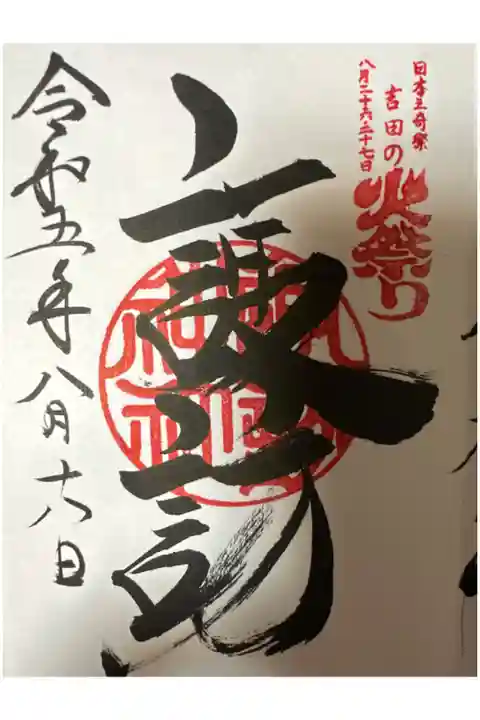 日本三奇祭
吉田の火祭り
八月二十六・二十七日
諏訪
令和五年八月十八日